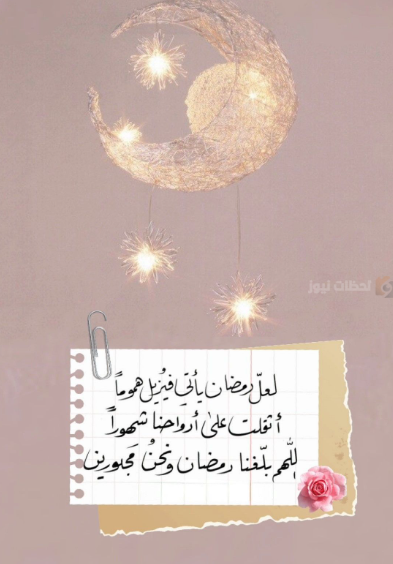 لحظات نيوز
لعلّ رمضان يأتي فيُزيل هموماً
أثقلت على أرواحنا شهوراً
اللهم بلّغنا رمضان ونحنُ مَجبورين